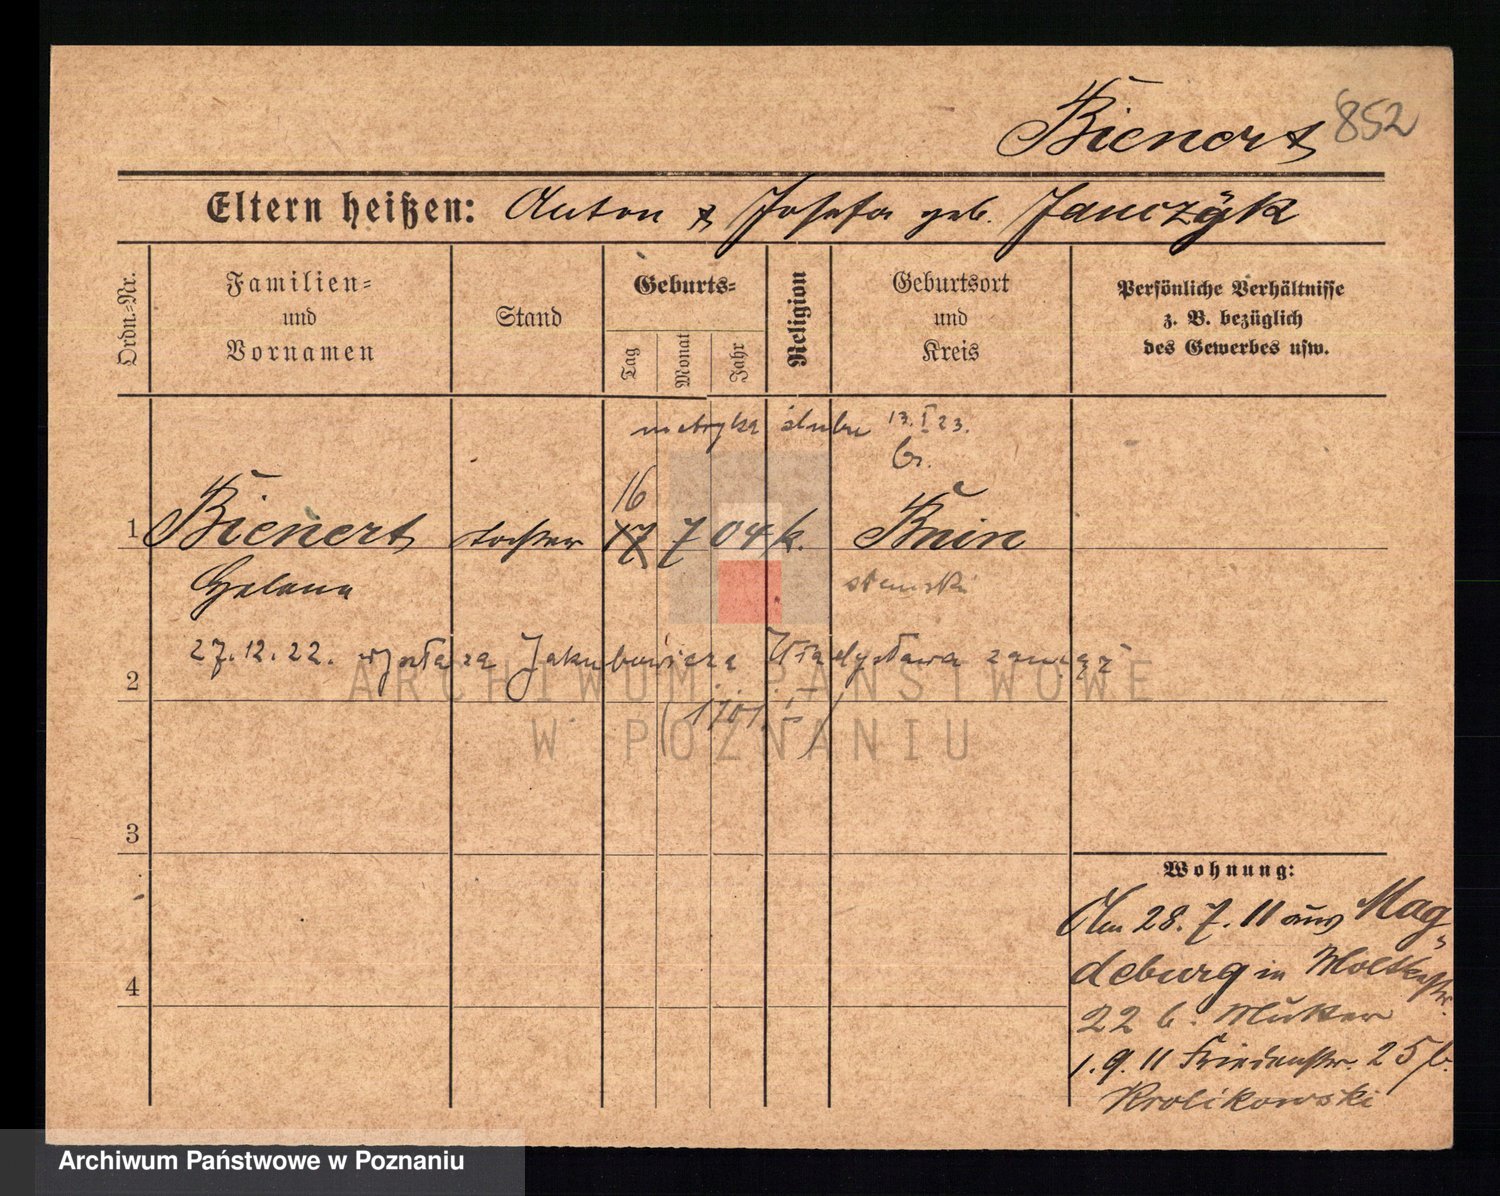 852
Bienert
Eltern heißen: Anton & Josefa geb. Janczyk
Ordn.=Nr.
Familien= und Vornamen
Stand
Geburts=
Tag
Monat
Jahr
Religion
Geburtsort und Kreis
Persönliche Verhältnisse z. B. bezüglich des Gewerbes usw.
metryka ślubu 13.I.23.
16
1 Bienert Tochter 17 7 04 k. Bnin
Helena
27.12.22. wyszła za Jakubowicza Władysława zamąż
2
3
4
Wohnung:
Am 28.7.11 aus Mag=
deburg in Moltkestr.
22 b. Mutter
1.9.11 Friedenstr. 25 b.
Krolikowski
ARCHIWUM PAŃSTWOWE
W POZNANIU
Archiwum Państwowe w Poznaniu